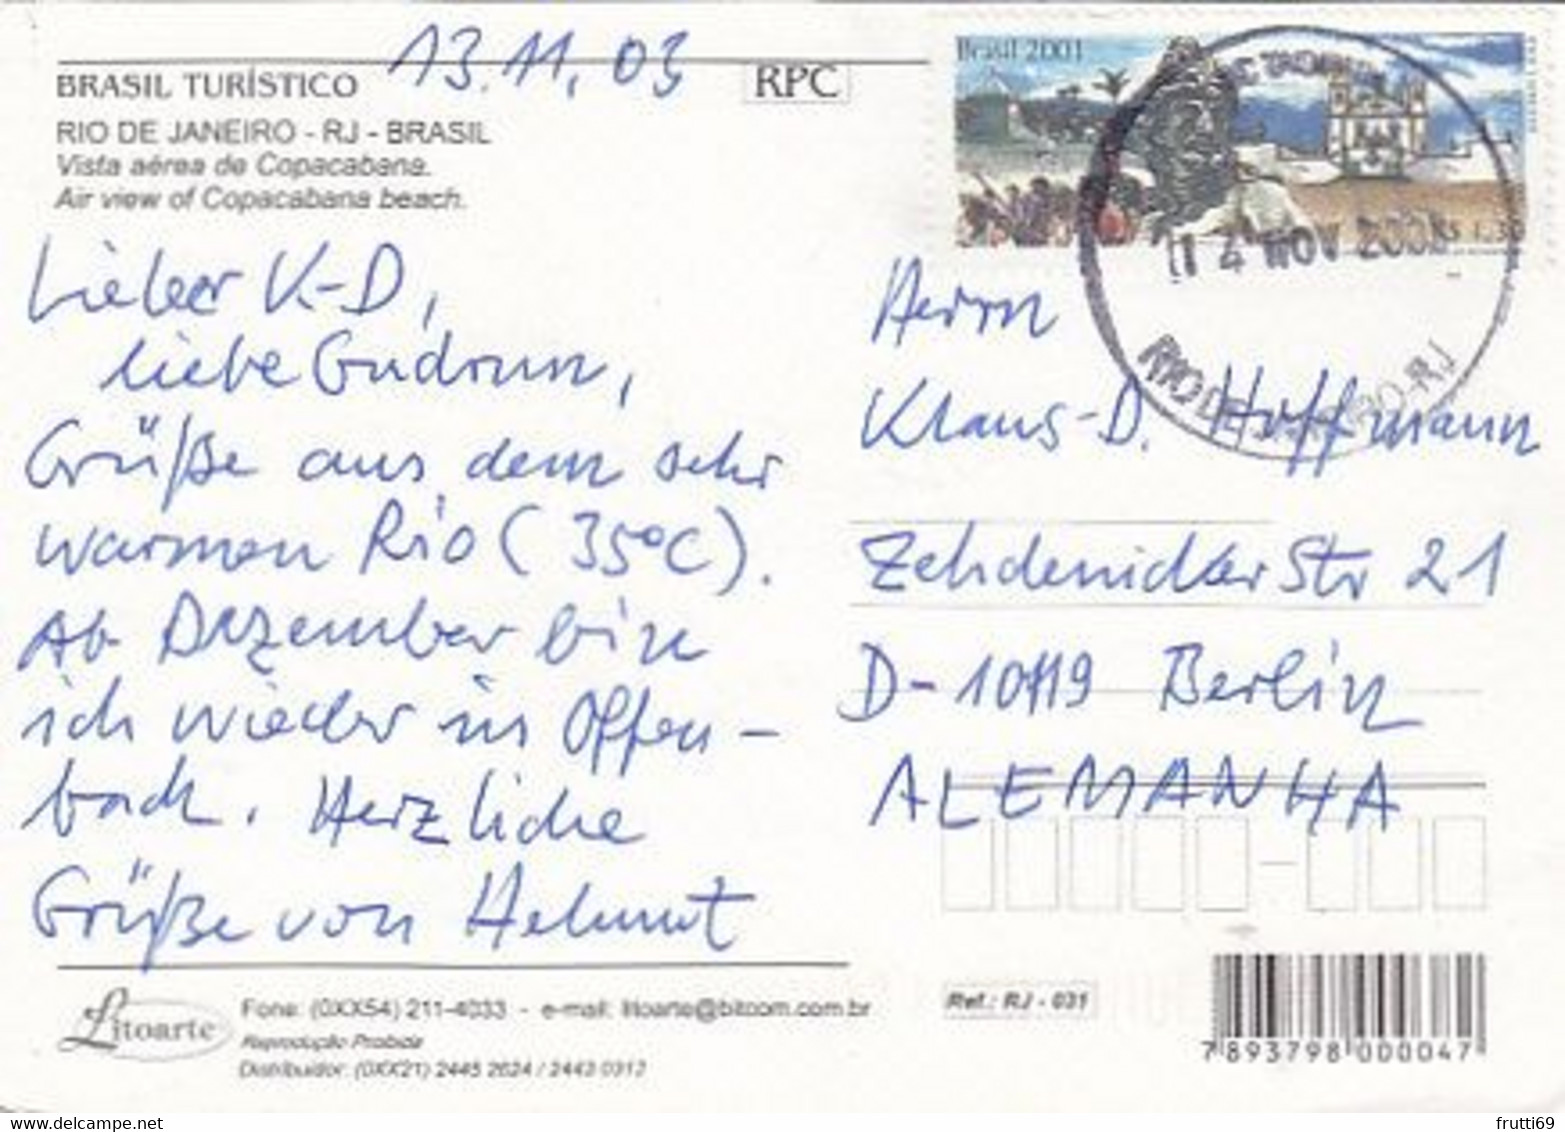 13.11.03
BRASIL TURÍSTICO
RPC
RIO DE JANEIRO - RJ - BRASIL
Vista aérea de Copacabana.
Air view of Copacabana beach.
Lieber K.-D,
liebe Gudrun,
Grüße aus dem sehr
warmen Rio (35°C).
Ab Dezember bin
ich wieder in Offen-
bach. Herzliche
Grüße von Helmut
Brasil 2001
14 NOV 2003
RIO DE JANEIRO-RJ
Herrn
Klaus-D. Hoffmann
Zehdenicker Str 21
D-10119 Berlin
ALEMANHA
Litoarte
Fone: (0XX54) 211-4033 - e-mail: litoarte@bitcom.com.br
Reprodução Proibida
Distribuidor: (0XX21) 2445 2624 / 2443 0317
Ref.: RJ - 031
7 893798 000047
frutti69